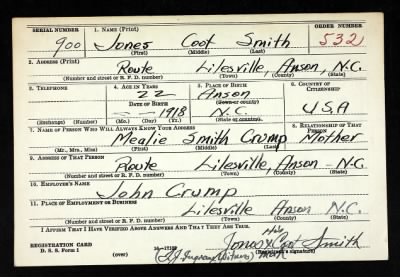 SERIAL NUMBER 1. NAME (Print) ORDER NUMBER
900 Jones Coot Smith 532
(First) (Middle) (Last)
2. ADDRESS (Print)
Route Lilesville, Anson, N.C.
(Number and street or R. F. D. number) (Town) (County) (State)
3. TELEPHONE 4. AGE IN YEARS 5. PLACE OF BIRTH 6. COUNTRY OF CITIZENSHIP
22 Anson
DATE OF BIRTH (Town or county)
1918 N.C. USA
(Exchange) (Number) (Mo.) (Day) (Yr.) (State or country)
7. NAME OF PERSON WHO WILL ALWAYS KNOW YOUR ADDRESS 8. RELATIONSHIP OF THAT PERSON
Mealie Smith Crump Mother
(Mr., Mrs., Miss) (First) (Middle) (Last)
9. ADDRESS OF THAT PERSON
Route Lilesville, Anson - N.C.
(Number and street or R. F. D. number) (Town) (County) (State)
10. EMPLOYER'S NAME
John Crump
11. PLACE OF EMPLOYMENT OR BUSINESS
Lilesville Anson N.C.
(Number and street or R. F. D. number) (Town) (County) (State)
I AFFIRM THAT I HAVE VERIFIED ABOVE ANSWERS AND THAT THEY ARE TRUE.
His
REGISTRATION CARD Jones X Coot Smith
D. S. S. Form 1 (over) Mark